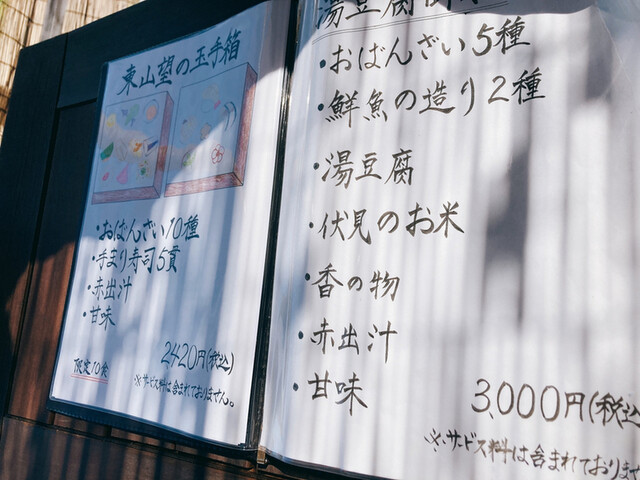 東山望の玉手箱
・おばんざい10種
・手まり寿司5貫
・赤出汁
・甘味
2420円(税込)
限定10食
※サービス料は含まれておりません。
湯豆腐御
・おばんざい5種
・鮮魚の造り2種
・湯豆腐
・伏見のお米
・香の物
・赤出汁
・甘味
3,000円(税込
※サービス料は含まれておりませ